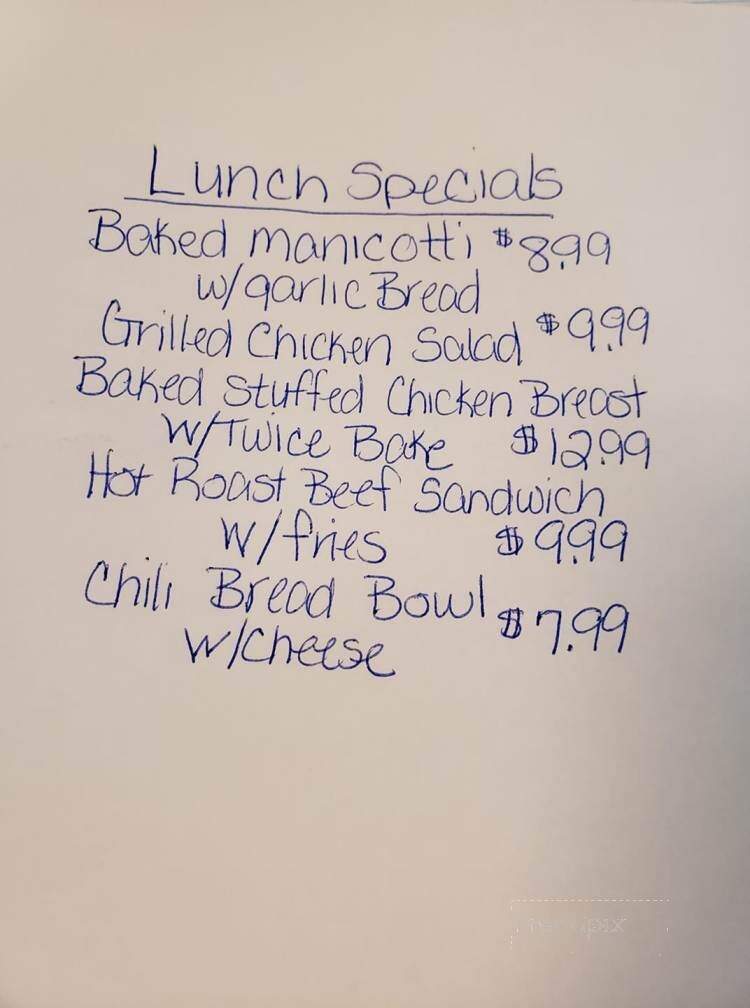 Lunch Specials
Baked Manicotti $8.99
w/garlic Bread
Grilled Chicken Salad $9.99
Baked Stuffed Chicken Breast
W/Twice Bake $12.99
Hot Roast Beef Sandwich
W/fries $9.99
Chili Bread Bowl $7.99
W/Cheese